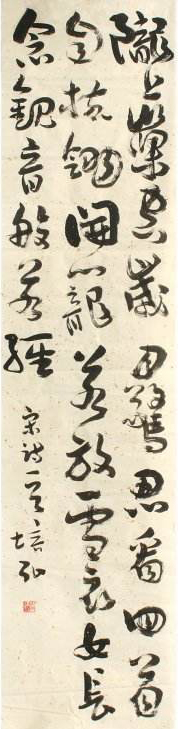 隴上巢空歲月驚忍看回首
自梳翎開籠若放雪衣女長
念觀音般若經
宋詩一首 培